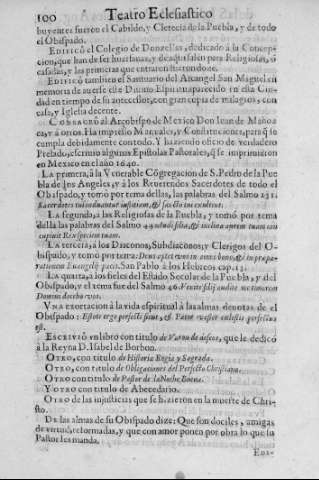 100 Teatro Eclesiastico
buyentes fueron el Cabildo, y Clerecia de la Puebla, y de todo
el Obispado.
EDIFICÒ el Colegio de Donzellas, dedicado à la Concep-
cion, que han de ser huerfanas, y de aqui salen para Religiosas, ò
casadas, y las primeras que entraron fueron
EDIFICÒ tambien el Santuario del Arcangel San Miguel en
memoria de averse este Divino Espiritu aparecido en esta Ciu-
dad en tiempo de su antecessor, con gran copia de milagros, con
casa, y Iglesia decente.
CONSAGRÒ al Arçobispo de Mexico Don Iuan de Mañoz
ca, y à otros. Ha impresso Manuales, y Constituciones, para q̃ se
cumpla debidamente con todo. Y haziendo oficio de verdadero
Prelado, escrivio algunas Epistolas Pastorales, q̃ se imprimieron
en Mexico en el año 1640.
La primera, à la Venerable Cõgregacion de S. Pedro de la Pue
bla de los Angeles, y à los Reverendos Sacerdotes de todo el
Obispado, y tomò por tema dellas, las palabras del Salmo 131.
Sacerdotes tui induantur iustitiam, & sancti tui exultent.
La segunda, à las Religiosas de la Puebla, y tomò por tema
della las palabras del Salmo 44. audi filia, & inclina aurem tuam
cupiuit Rex speciem tuam.
La tercera, à los Diaconos, Subdiaconos, y Clerigos del O-
bispado, y tomò por tema:
rationem Euangelij pacis. San Pablo à los Hebreos cap. 13.
La quarta, à los fieles del Estado Secular de la Puebla, y del
Obispado, y el tema fue del Salmo 46. Venite filij audite me timorem
Domini docebo vos.
VNA exortacion à la vida espiritual à las almas devotas de el
Obispado: Estote ergo perfecti sicut, & Pater vester cælestis perfectus
est.
ESCRIVIÒ un libro con titulo de Varon de deseos, que le dedicò
à la Reyna D. Isabel de Borbon.
OTRO, con titulo de Historia Regia y Sagrada.
OTRO, con titulo de Obligaciones del Perfecto Christiano.
OTRO con titulo de Pastor de la Noche Buena.
Y OTRO con titulo de Abecedario.
OTRO de las injusticias que se hizieron en la muerte de Chri-
sto.
DE las almas de su Obispado dize: Que son dociles, amigas
de virtud, reformadas, y que con amor ponen por obra lo que su
Pastor les manda.